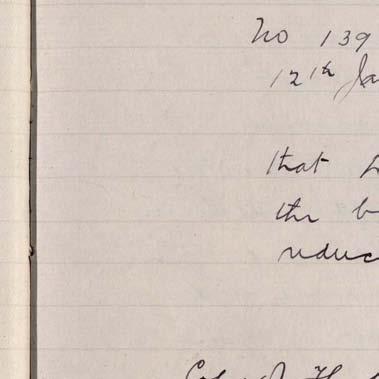 No 139
12th Ja
that
the b
reduc